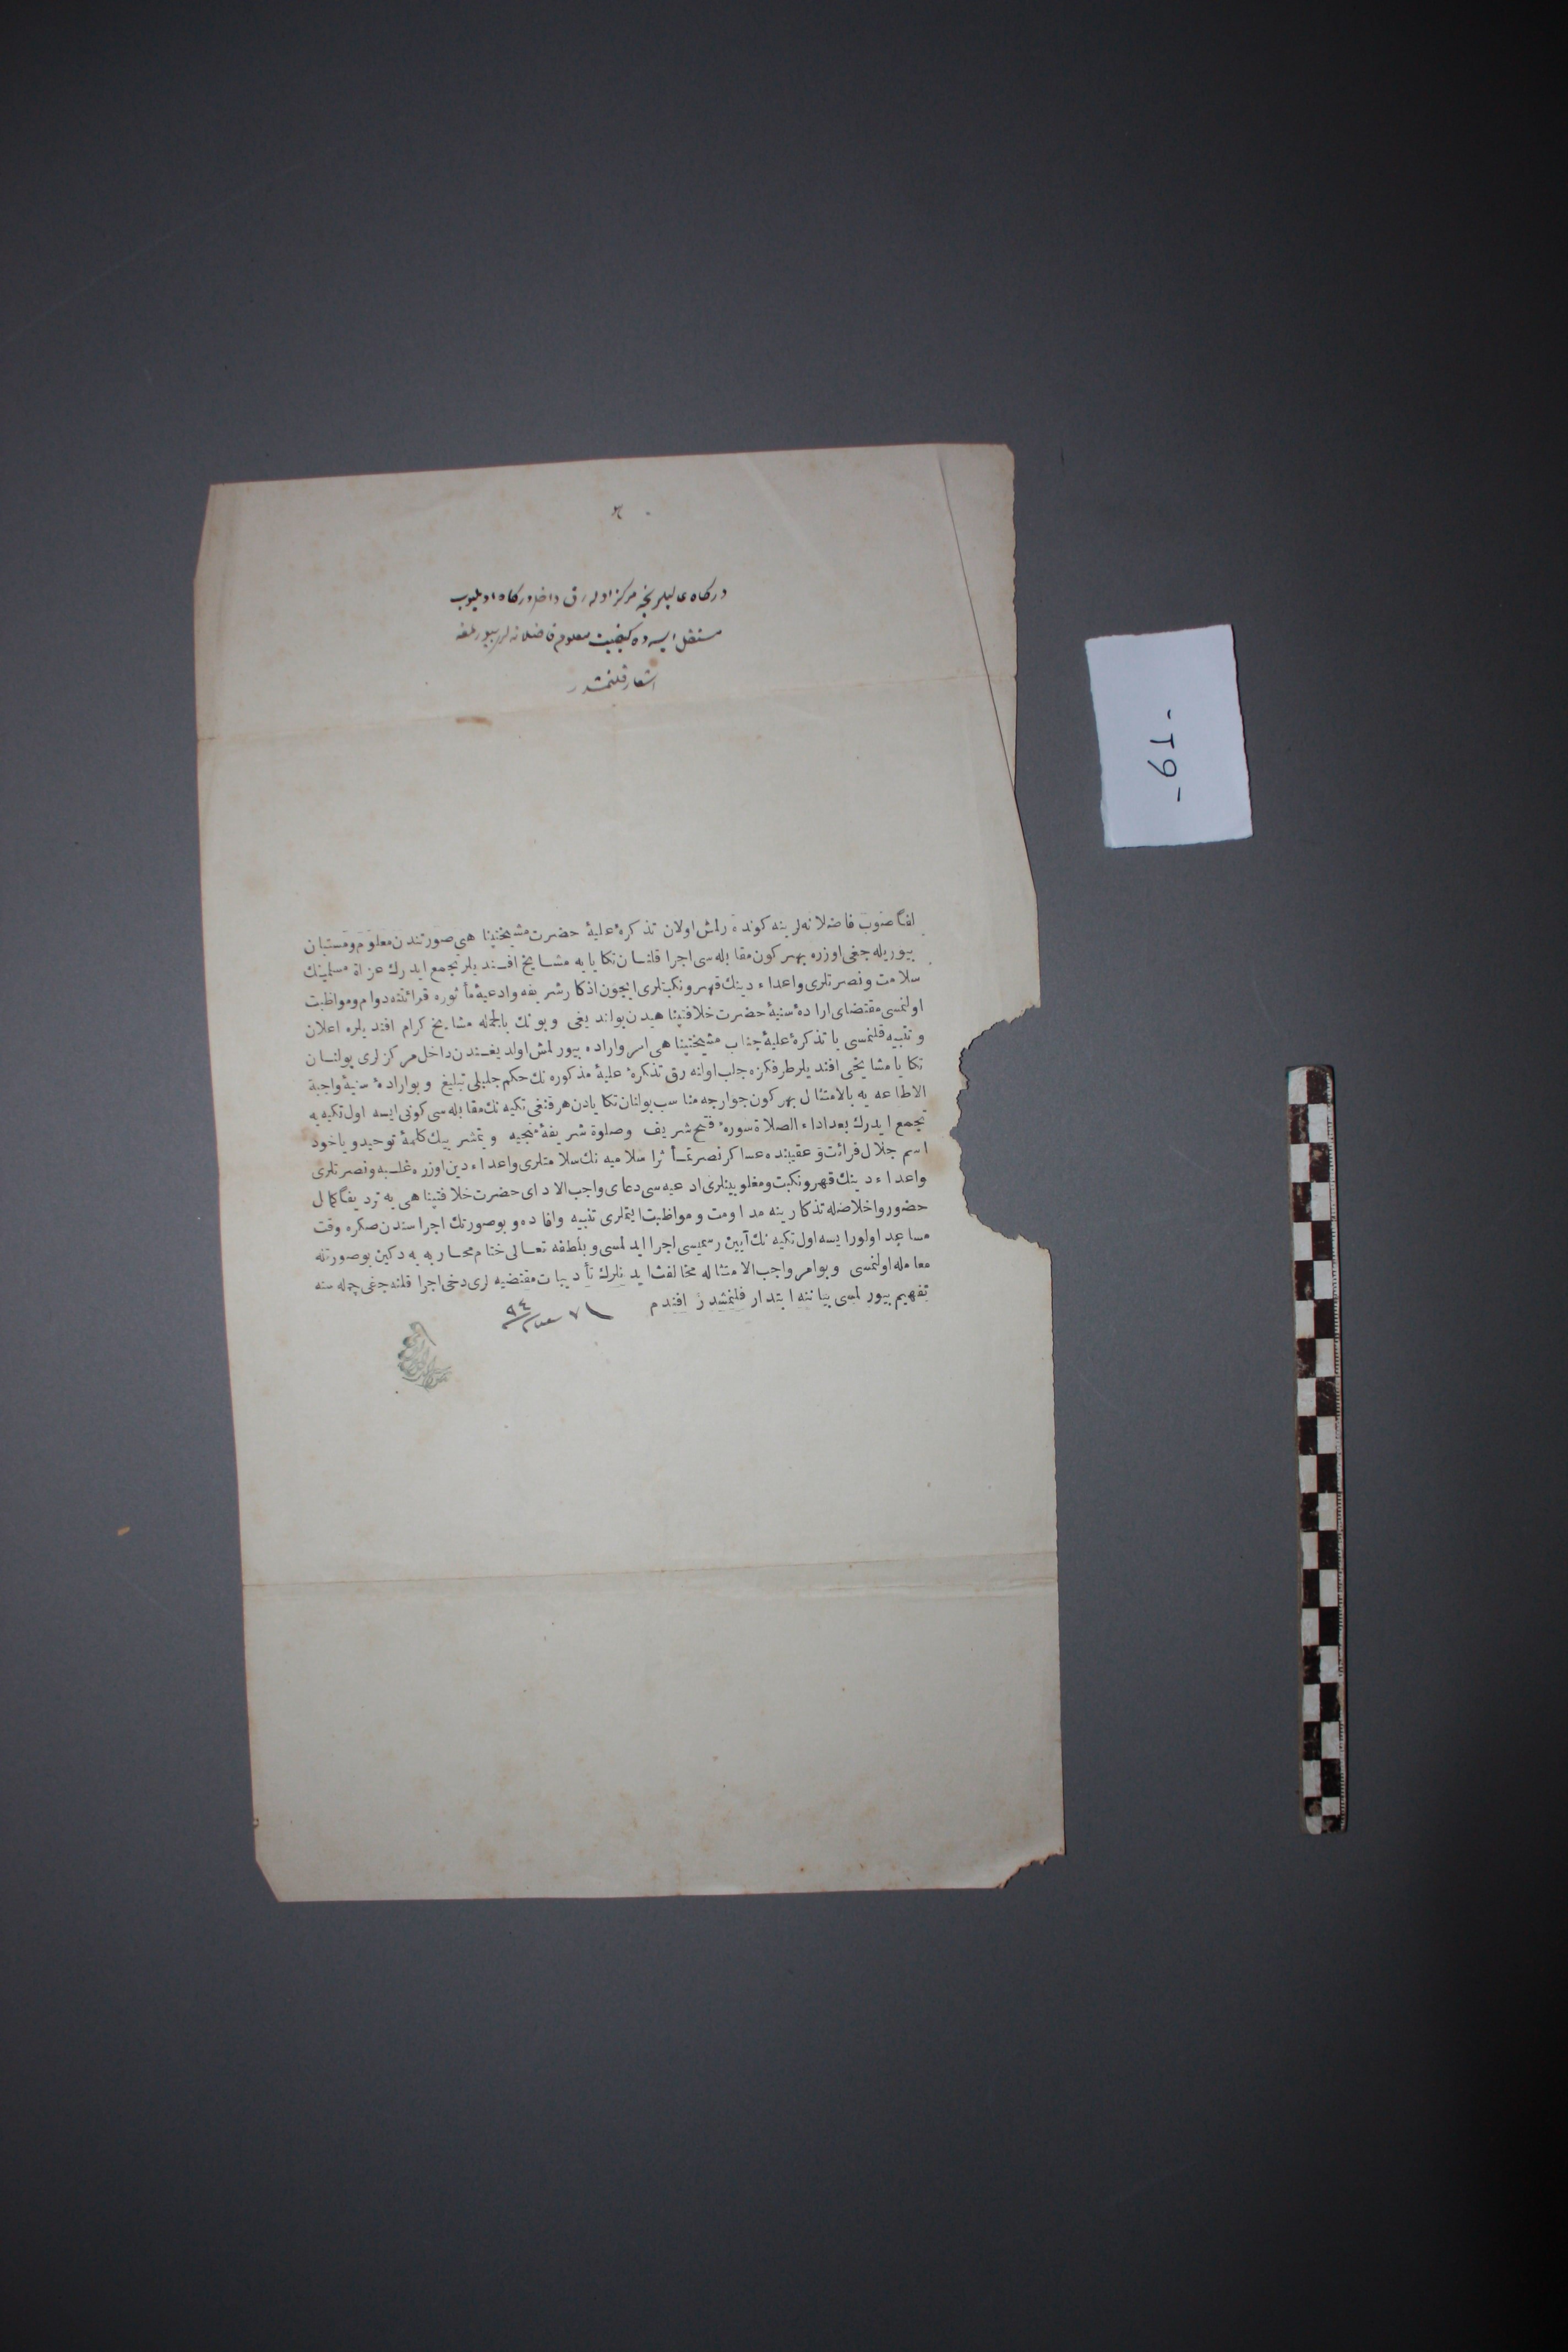 درکاه عالیلرنجه مرکز اوله رق داخل درکاه اولمیوب
مستقل ایسه ده کیفیت معلوم فاضلانه لری بیورلمغه
اشعار قلنمشدر
لفاً صوب فاضلانه لرینه کوندرلمش اولان تذکرهٔ علیهٔ حضرت مشیختپناهی صورتندن معلوم ومستبان
بیوریله جغی اوزره بهر کون مقابله سی اجرا قلنان تکایایه مشایخ افندیلر تجمع ایدرك غزاة مسلمینك
سلامت ونصرتلری واعداء دینك قهر ونکبتلری ایچون اذکار شریفه وادعیهٔ مأثوره قرائتنه دوام ومواظبت
اولنمسی مقتضای ارادهٔ سنیهٔ حضرت خلافتپناهیدن بولندیغی وبونك بالجمله مشایخ کرام افندیلره اعلان
وتنبیه قلنمسی با تذکرهٔ علیهٔ جناب مشیختپناهی امر واراده بیورلمش اولدیغندن داخل مرکزلری بولنان
تکایا مشایخی افندیلر طرفکزه جلب اولنه رق تذکرهٔ علیهٔ مذکوره نك حکم جلیلی تبلیغ وبو ارادهٔ سنیهٔ واجبة
الاطاعه یه بالامتثال بهر کون جوارجه مناسب بولنان تکایادن هر قنغی تکیه نك مقابله سی کونی ایسه اول تکیه یه
تجمع ایدرك بعد اداء الصلاة سورهٔ فتح شریف وصلوة شریفهٔ منجیه ویتمش بیك کلمهٔ توحید ویاخود
اسم جلال قرائت وعقیبنده عساکر نصرتمآثر اسلامیه نك سلامتلری واعداء دین اوزره غلبه ونصرتلری
واعداء دینك قهر ونکبت ومغلوبیتلری ادعیه سی دعای واجب الادای حضرت خلافتپناهی یه تردیفاً کمال
حضور واخلاصله تذکارینه مداومت ومواظبت ایتملری تنبیه وافاده وبو صورتك اجراسندن صکره وقت
مساعد اولور ایسه اول تکیه نك آیین رسمیسی اجرا ایدلمسی وبلطفه تعالی ختام محاربه یه دکین بو صورتله
معامله اولنمسی وبو امر واجب الامتثاله مخالفت ایدنلرك تأدیبات مقتضیه لری دخی اجرا قلنه جغی جمله سنه
تفهیم بیورلمسی بیاننه ابتدار قلنمشدر افندم
٩٤